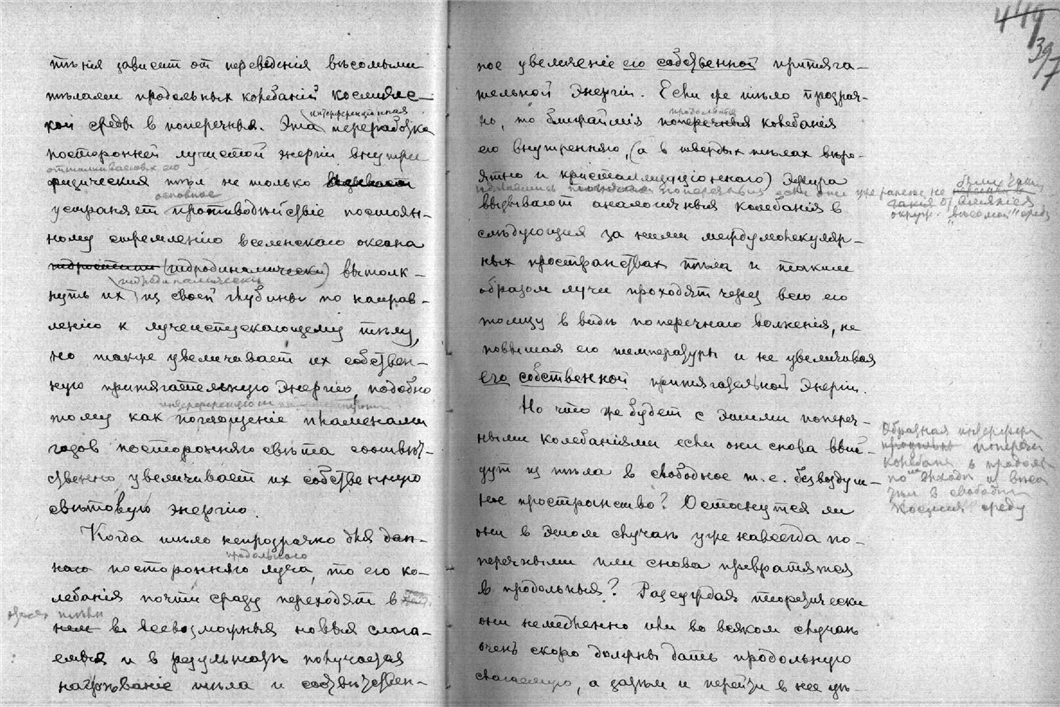 тѣнія зависит от переведенія вѣсомыми
тѣлами продольных колебаній космичес-
кой среды в поперечныя. Эта переработка
посторонней лучистой энергіи внутри
физических тѣл не только
основное
устраняет противодѣйствіе постоян-
ному стремленію вселенскаго океана
(гидродинамически) вытолк-
гидродинамически
нуть их из своей глубины по направ-
ленію к лучеиспускающему тѣлу,
но также увеличивает их собствен-
ную притягательную энергію, подобно
тому как поглощеніе пламенами
газов посторонняго свѣта соотвѣт-
ственно увеличивает их собственную
свѣтовую энергію.
Когда тѣло непрозрачно для дан-
продольнаго
наго посторонняго луча, то его ко-
лебанія почти сразу переходят в
нем в всевозможныя новыя слага-
емыя и в результатѣ получается
нагрѣваніе тѣла и соотвѣтствен-
449
397
ное увеличеніе его собственной притяга-
тельной энергіи. Если же тѣло прозрач-
продольныя
но, то ближайшія поперечныя колебанія
его внутренняго, (а в твердых тѣлах вѣро-
ятно и кристаллизаціоннаго) эфира
вызывают аналогичныя колебанія в
слѣдующих за ними междумолекуляр-
ных пространствах тѣла и таким
образом лучи проходят через всю его
толщу в видѣ поперечнаго волненія, не
повышая его температуры и не увеличивая
его собственной притягательной энергіи.
Но что же будет с этими попереч-
ными колебаніями если они снова вый-
дут из тѣла в свободное т.е. безвоздуш-
ное пространство? Останутся ли
они в этом случаѣ уже навсегда по-
перечными или снова превратятся
в продольныя? Разсуждая теоретически
они немедленно или во всяком случаѣ
очень скоро должны дать продольную
слагаемую, а затѣм и перейти в нее
поперечн
колебан в продол
по выходѣ
в свободн
космич среду